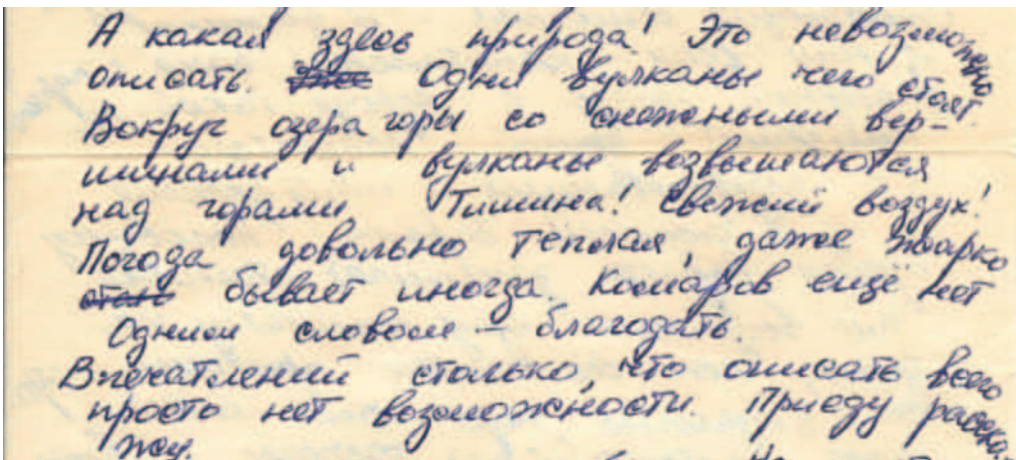 А какая здесь природа! Это невозможно
описать. Одни вулканы чего стоят.
Вокруг озера горы со снежными вер-
шинами и вулканы возвышаются
над горами. Тишина! Свежий воздух!
Погода довольно теплая, даже жарко
бывает иногда. Комаров ещё нет
Одним словом – благодать.
Впечатлений столько, что описать всего
просто нет возможности. Приеду расска-
жу.